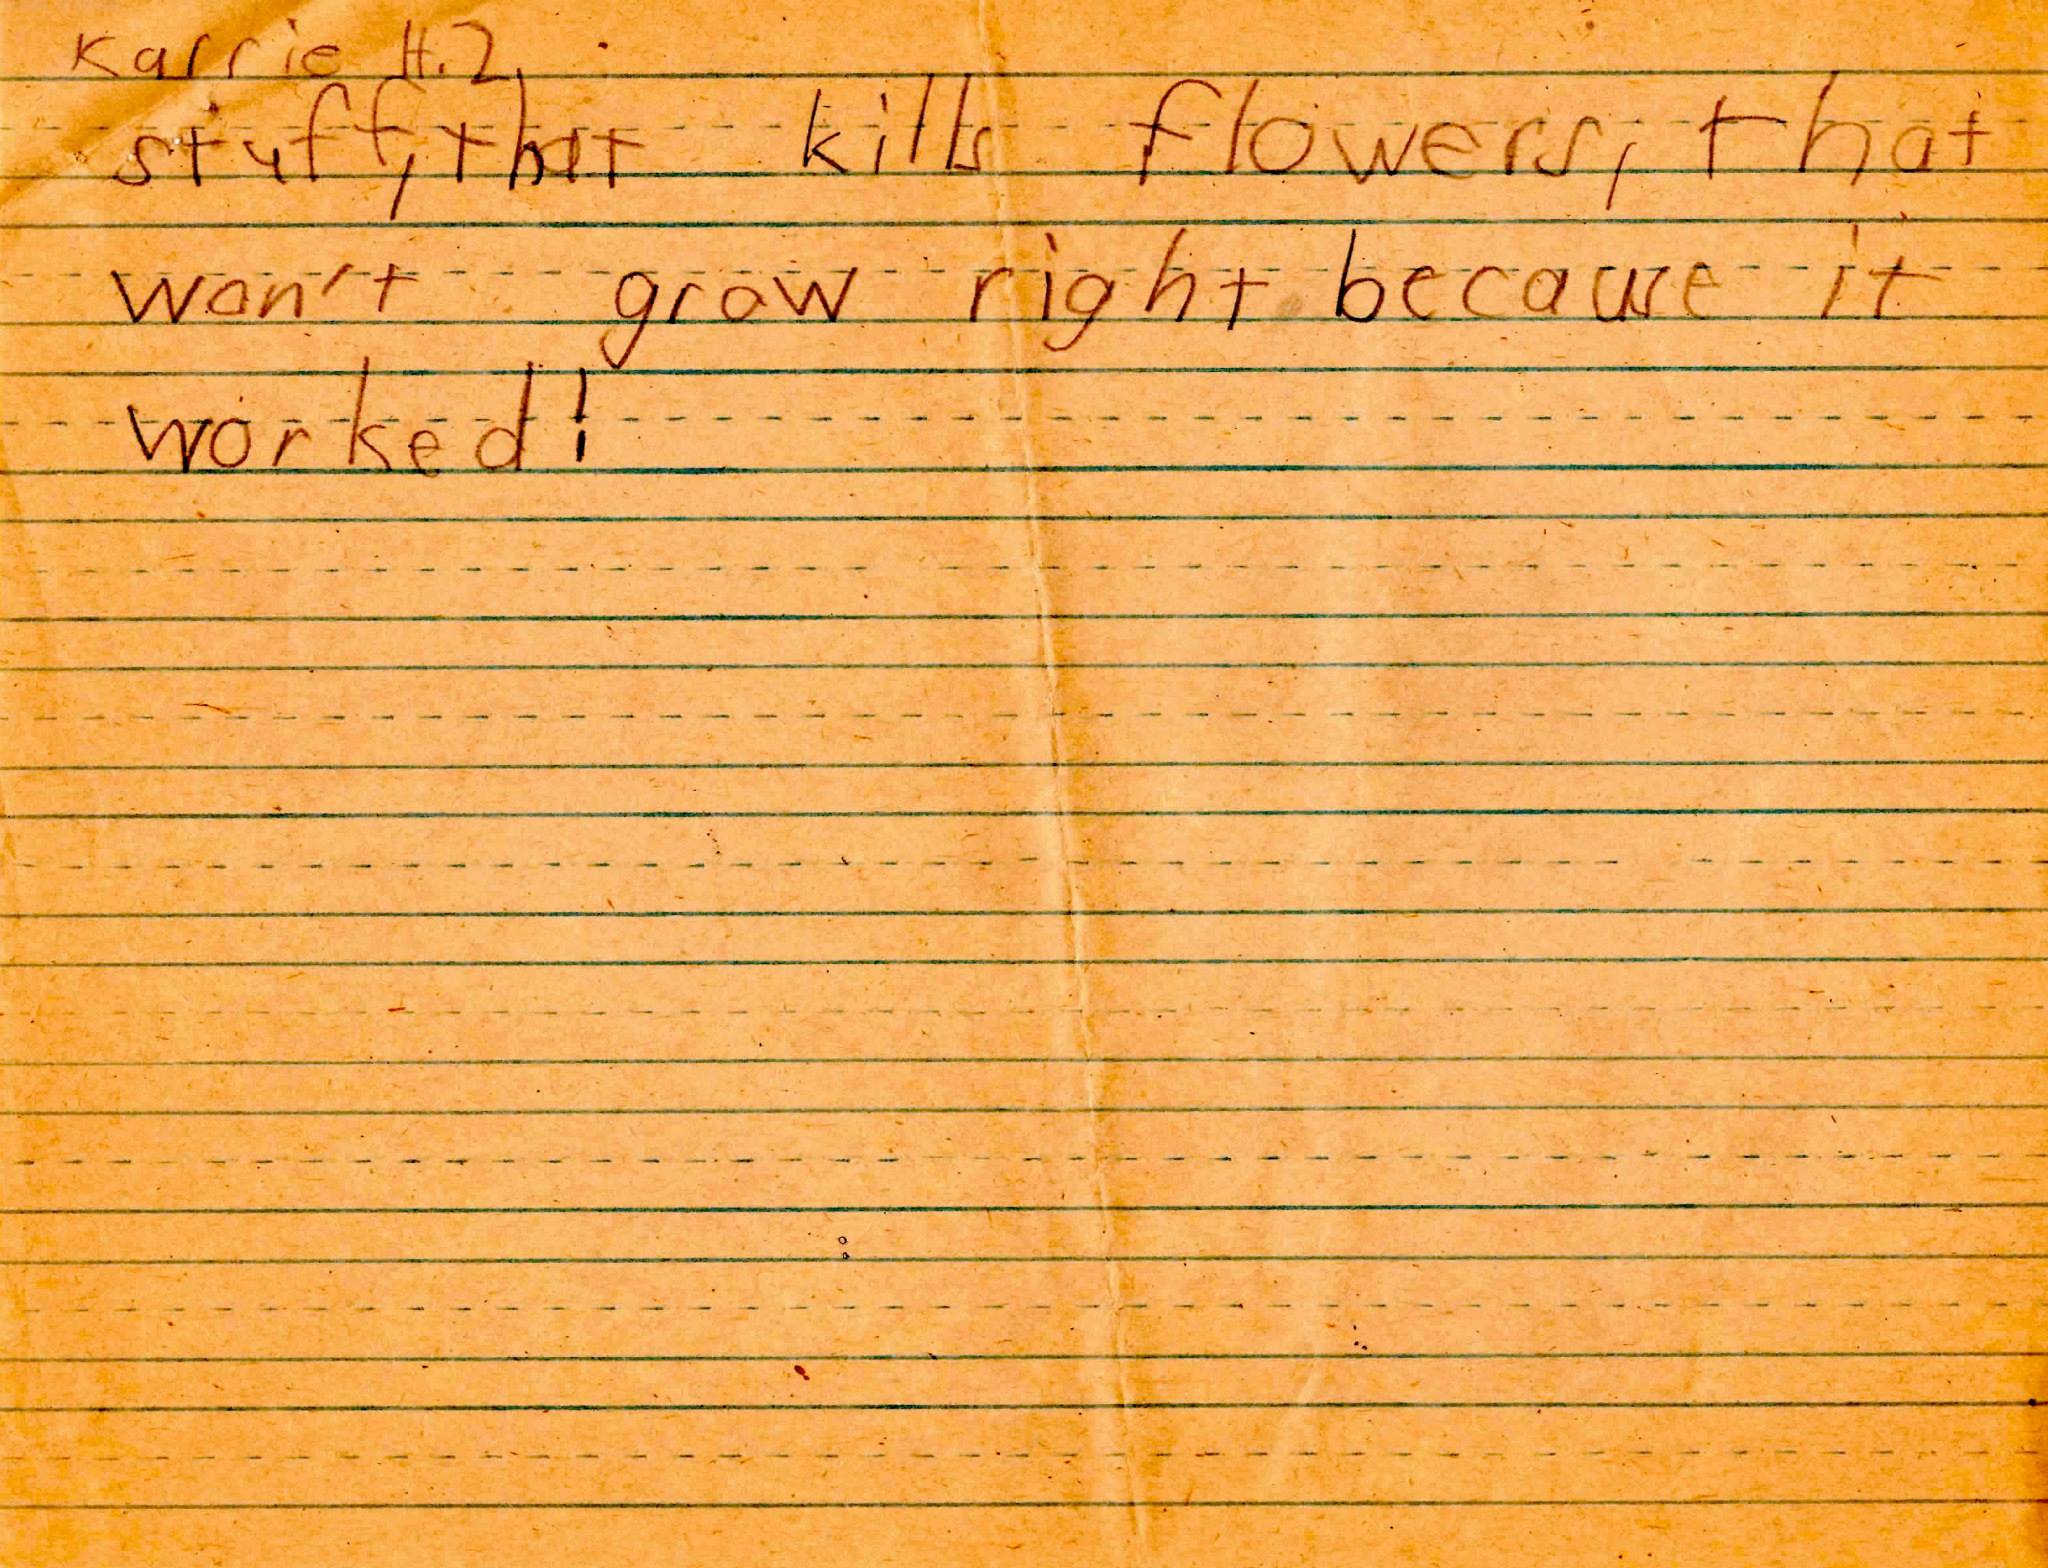 Karrie H.2
stuff, that kills flowers, that
won't grow right because it
worked!